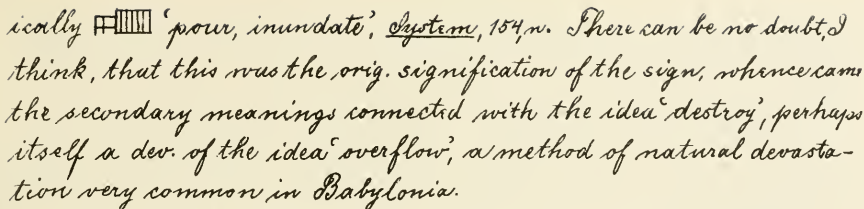 ically 'pour, inundate', System, 154, n. There can be no doubt, I
think, that this was the orig. signification of the sign, whence came
the secondary meanings connected with the idea 'destroy', perhaps
itself a dev. of the idea 'overflow', a method of natural devasta-
tion very common in Babylonia.